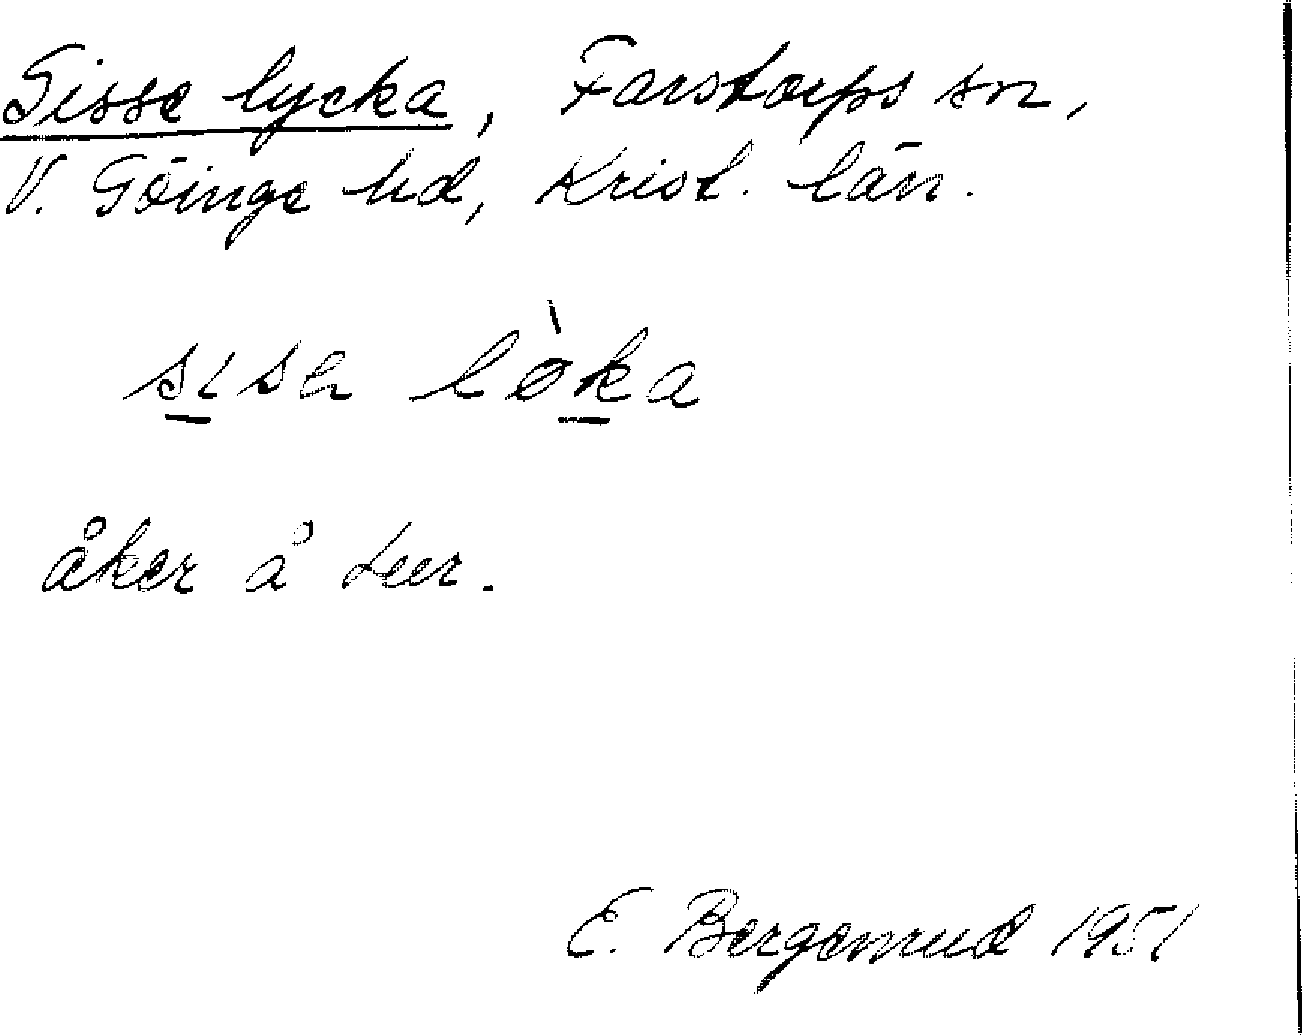 Sisse lycka, Farstorps sn,
V. Göinge hd, Krist. län.
sisə lø̀ka
åker å Lur.
E. Bergemrud 1951